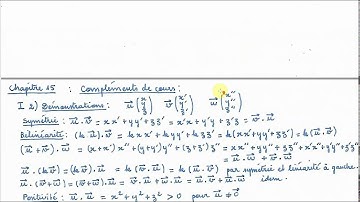 Chapitre 15 : Compléments de cours :
I 2) Démonstrations : u⃗ (x y z) v⃗ (x' y' z') w⃗ (x'' y'' z'')
Symétrie : u⃗ . v⃗ = xx' + yy' + zz' = x'x + y'y + z'z = v⃗ . u⃗
Bilinéarité : (k u⃗) . v⃗ = kxx' + kyy' + kzz' = k(xx' + yy' + zz') = k(u⃗ . v⃗)
(u⃗ + v⃗) . w⃗ = (x + x')x'' + (y + y')y'' + (z + z')z'' = xx'' + yy'' + zz'' + x'x'' + y'y'' + z'z''
= u⃗ . w⃗ + v⃗ . w⃗
u⃗ . (k v⃗) = (k v⃗) . u⃗ = k(v⃗ . u⃗) = k(u⃗ . v⃗) par symétrie et linéarité à gauche.
u⃗ . (v⃗ + w⃗) = (v⃗ + w⃗) . u⃗ = v⃗ . u⃗ + w⃗ . u⃗ = u⃗ . v⃗ + u⃗ . w⃗ idem.
Positivité : u⃗ . u⃗ = x² + y² + z² > 0 pour u⃗ ≠ 0⃗